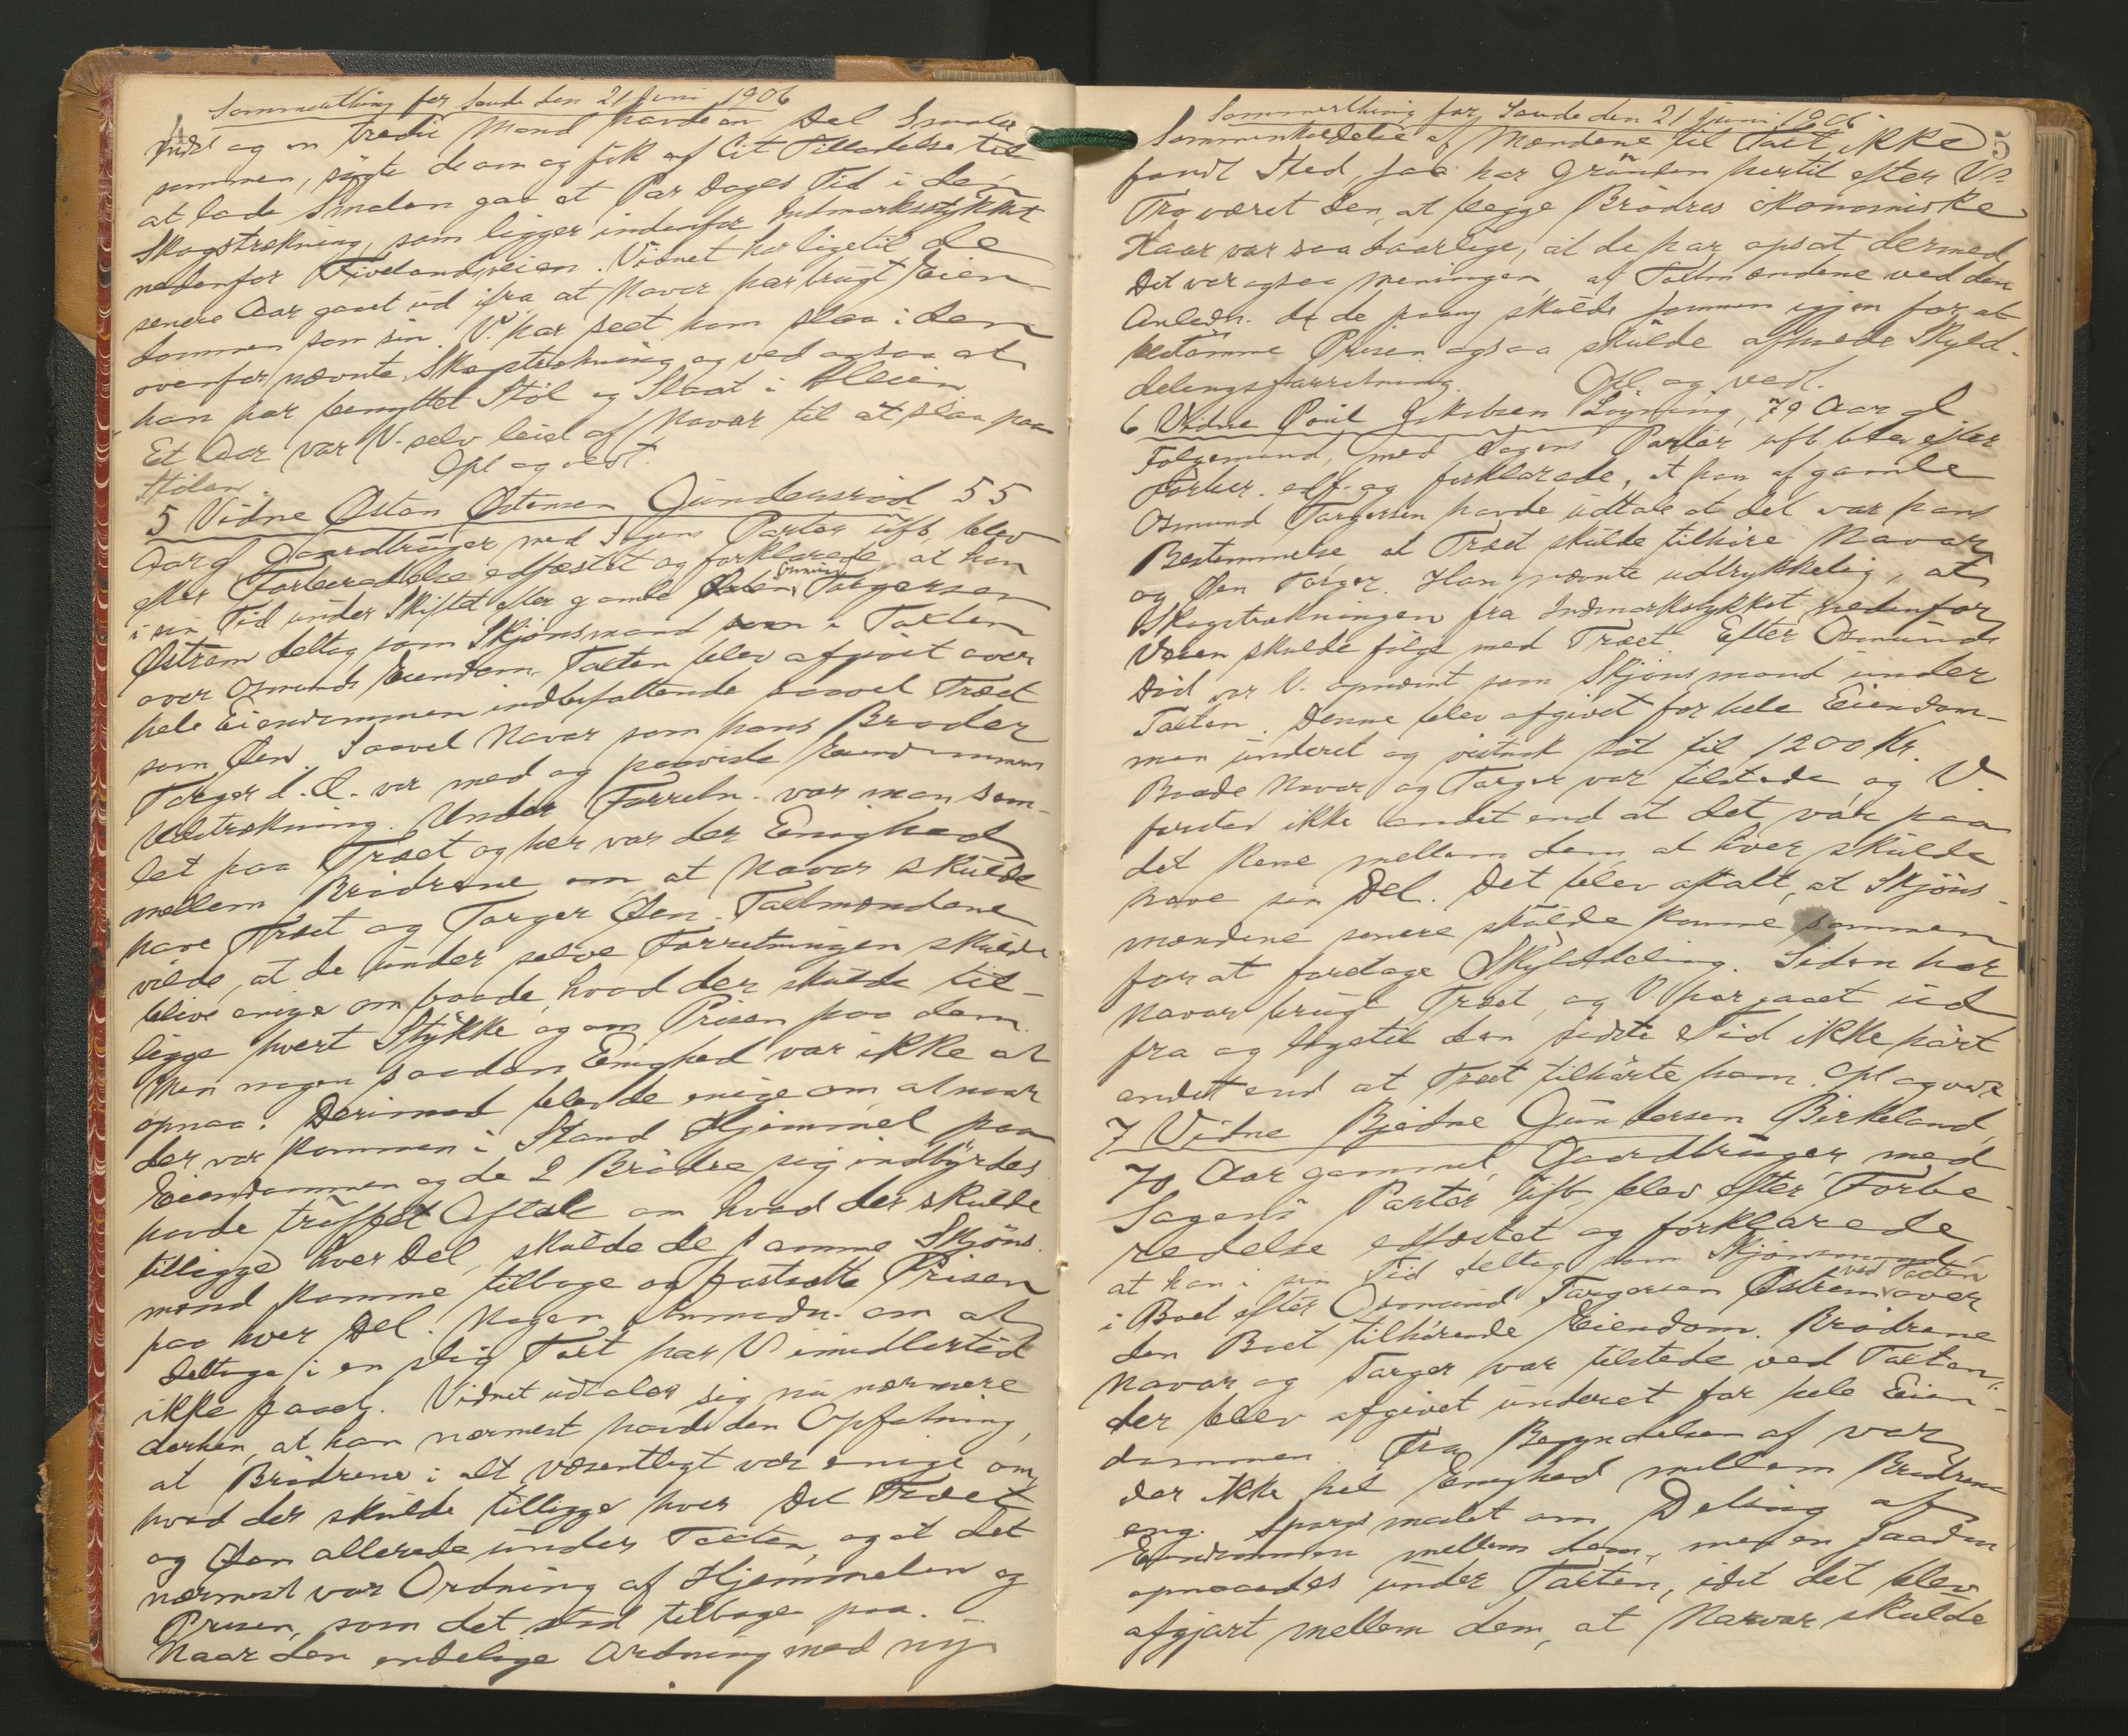 Sommerthing for Saude den 21 Juni 1906
4
og en tredie Mand havde en Del Smaler
sammen, søgte de om og fik af Cit Tilladelse til
at lade Smalen gaa et Par Dages Tid i den
Skogstrekning, som ligger indenfor Indmarksstykket
nedenfor Fivelandsveien. Vidnet har ligetil de
senere Aar gaaet ud ifra at Navar har brugt Eien
dommen som sin. V. har seet ham slaa i den
ovenfor nævnte Skogstrekning og ved ogsaa at
han har benyttet Støl og Slaat i Heien
Et Aar var V. selv leid af Navar til at slaa paa
Stølen. Opl og vedt.
5 Vidne Østen Østensen Gundersrød 55
Aar gl Gaardbruger med Sagens Parter ub., blev
efter Forberedelse edfæstet og forklarede, at han
i sin Tid under Skiftet efter gamle Osmund Torgersen
Østrem deltog som Skjønsmand i Taxten
over Osmunds Eiendom. Taxten blev afgivet over
hele Eiendommen indbefattende saavel Træet
som Øen. Saavel Navar som hans Broder
Torger d. Æ. var med og paaviste Eiendommens
Udstrekning. Under Forretn. var man sam-
let paa Træet og her var der Enighed
mellem Brødrene om at Navar skulde
have Træet og Torger Øen. Taxtmændene
vilde, at de under selve Forretningen skulde
blive enige om baade, hvad der skulde til-
ligge hvert Stykke og om Prisen paa dem.
Men nogen saadan Enighed var ikke at
opnaa. Derimod blev de enige om, at naar
der var kommen i Stand Hjemmel paa
Eiendommen og de 2 Brødre sig indbyrdes
havde truffet Aftale om hvad der skulde
tilligge hver Del, skulde de samme Skjøns-
mænd komme tilbage og fastsætte Prisen
paa hver Del. Nogen Anmodn. om at
deltage i en slig Taxt har V. imidlertid
ikke faaet. Vidnet udtaler sig nu nærmere
derhen, at han nærmest havde den Opfatning,
at Brødrene i alt væsentligt var enige om
hvad der skulde tilligge hver Del Træet
og Øen allerede under Taxten, og at det
nærmest var Ordning af Hjemmelen og
Prisen, som det stod tilbage paa. –
Naar den endelige Ordning med ny
Sommerthing for Saude den 21 Juni 1906
5
Sammenkaldelse af Mændene til Taxt ikke
fandt Sted, saa har Grunden hertil efter V's
Tro været den, at begge Brødres økonomiske
Kaar var saa daarlige, at de har opsat dermed
Det var ogsaa Meningen, at Taxtmændene ved den
Anledn. da de paany skulde sammen igjen for at
bestemme Prisen ogsaa skulde afholde Skyld-
delingsforretning. Opl. og vedt.
6 Vidne Poul Jakobsen Løgning, 79 Aar gl
Følgemand, med Sagens Parter ub. blev efter
Forber. edf. og forklarede, at han af gamle
Osmund Torgersen havde udtale at det var hans
Bestemmelse at Træet skulde tilhøre Navar
og Øen Torger. Han nævnte udtrykkelig, at
Skogstrekningen fra Indmarkstykket nedenfor
Veien skulde følge med Træet. Efter Osmunds
Død var V. opnævnt som Skjønsmand under
Taxten. Denne blev afgivet for hele Eiendom-
men underet og til 1200 Kr.
Baade Navar og Torger var tilstede, og V.
forstod ikke andet end at det var paa
det Rene mellem dem, at hver skulde
have sin Del. Det blev aftalt, at Skjøns-
mændene senere skulde komme sammen
for at foretage Skylddeling. Siden har
Navar brugt Træet, og V. har gaaet ud
fra og ligetil den sidste Tid ikke hørt
andet end at Træet tilhørte ham. Opl og vedt
7 Vidne Bjedne Gundersen Birkeland,
70 Aar gammel, Gaardbruger, med
Sagens Parter ub., blev efter Forbe-
redelse edfæstet og forklarede
at han i sin Tid deltog som Skjønsmand
i Boet efter Osmund Torgersen Østrem ved Taxten over
den Boet tilhørende Eiendom. Brødrene
Navar og Torger var tilstede ved Taxten,
der blev afgivet underet for hele Eien-
dommen. Fra Begyndelsen af var
der ikke hel Enighed mellem Brødrene
ang. Spørgsmaalet om Deling af
Eiendommen mellem dem, men en saadan
opnaaedes under Taxten, idet det blev
afgjort mellem dem, at Navar skulde